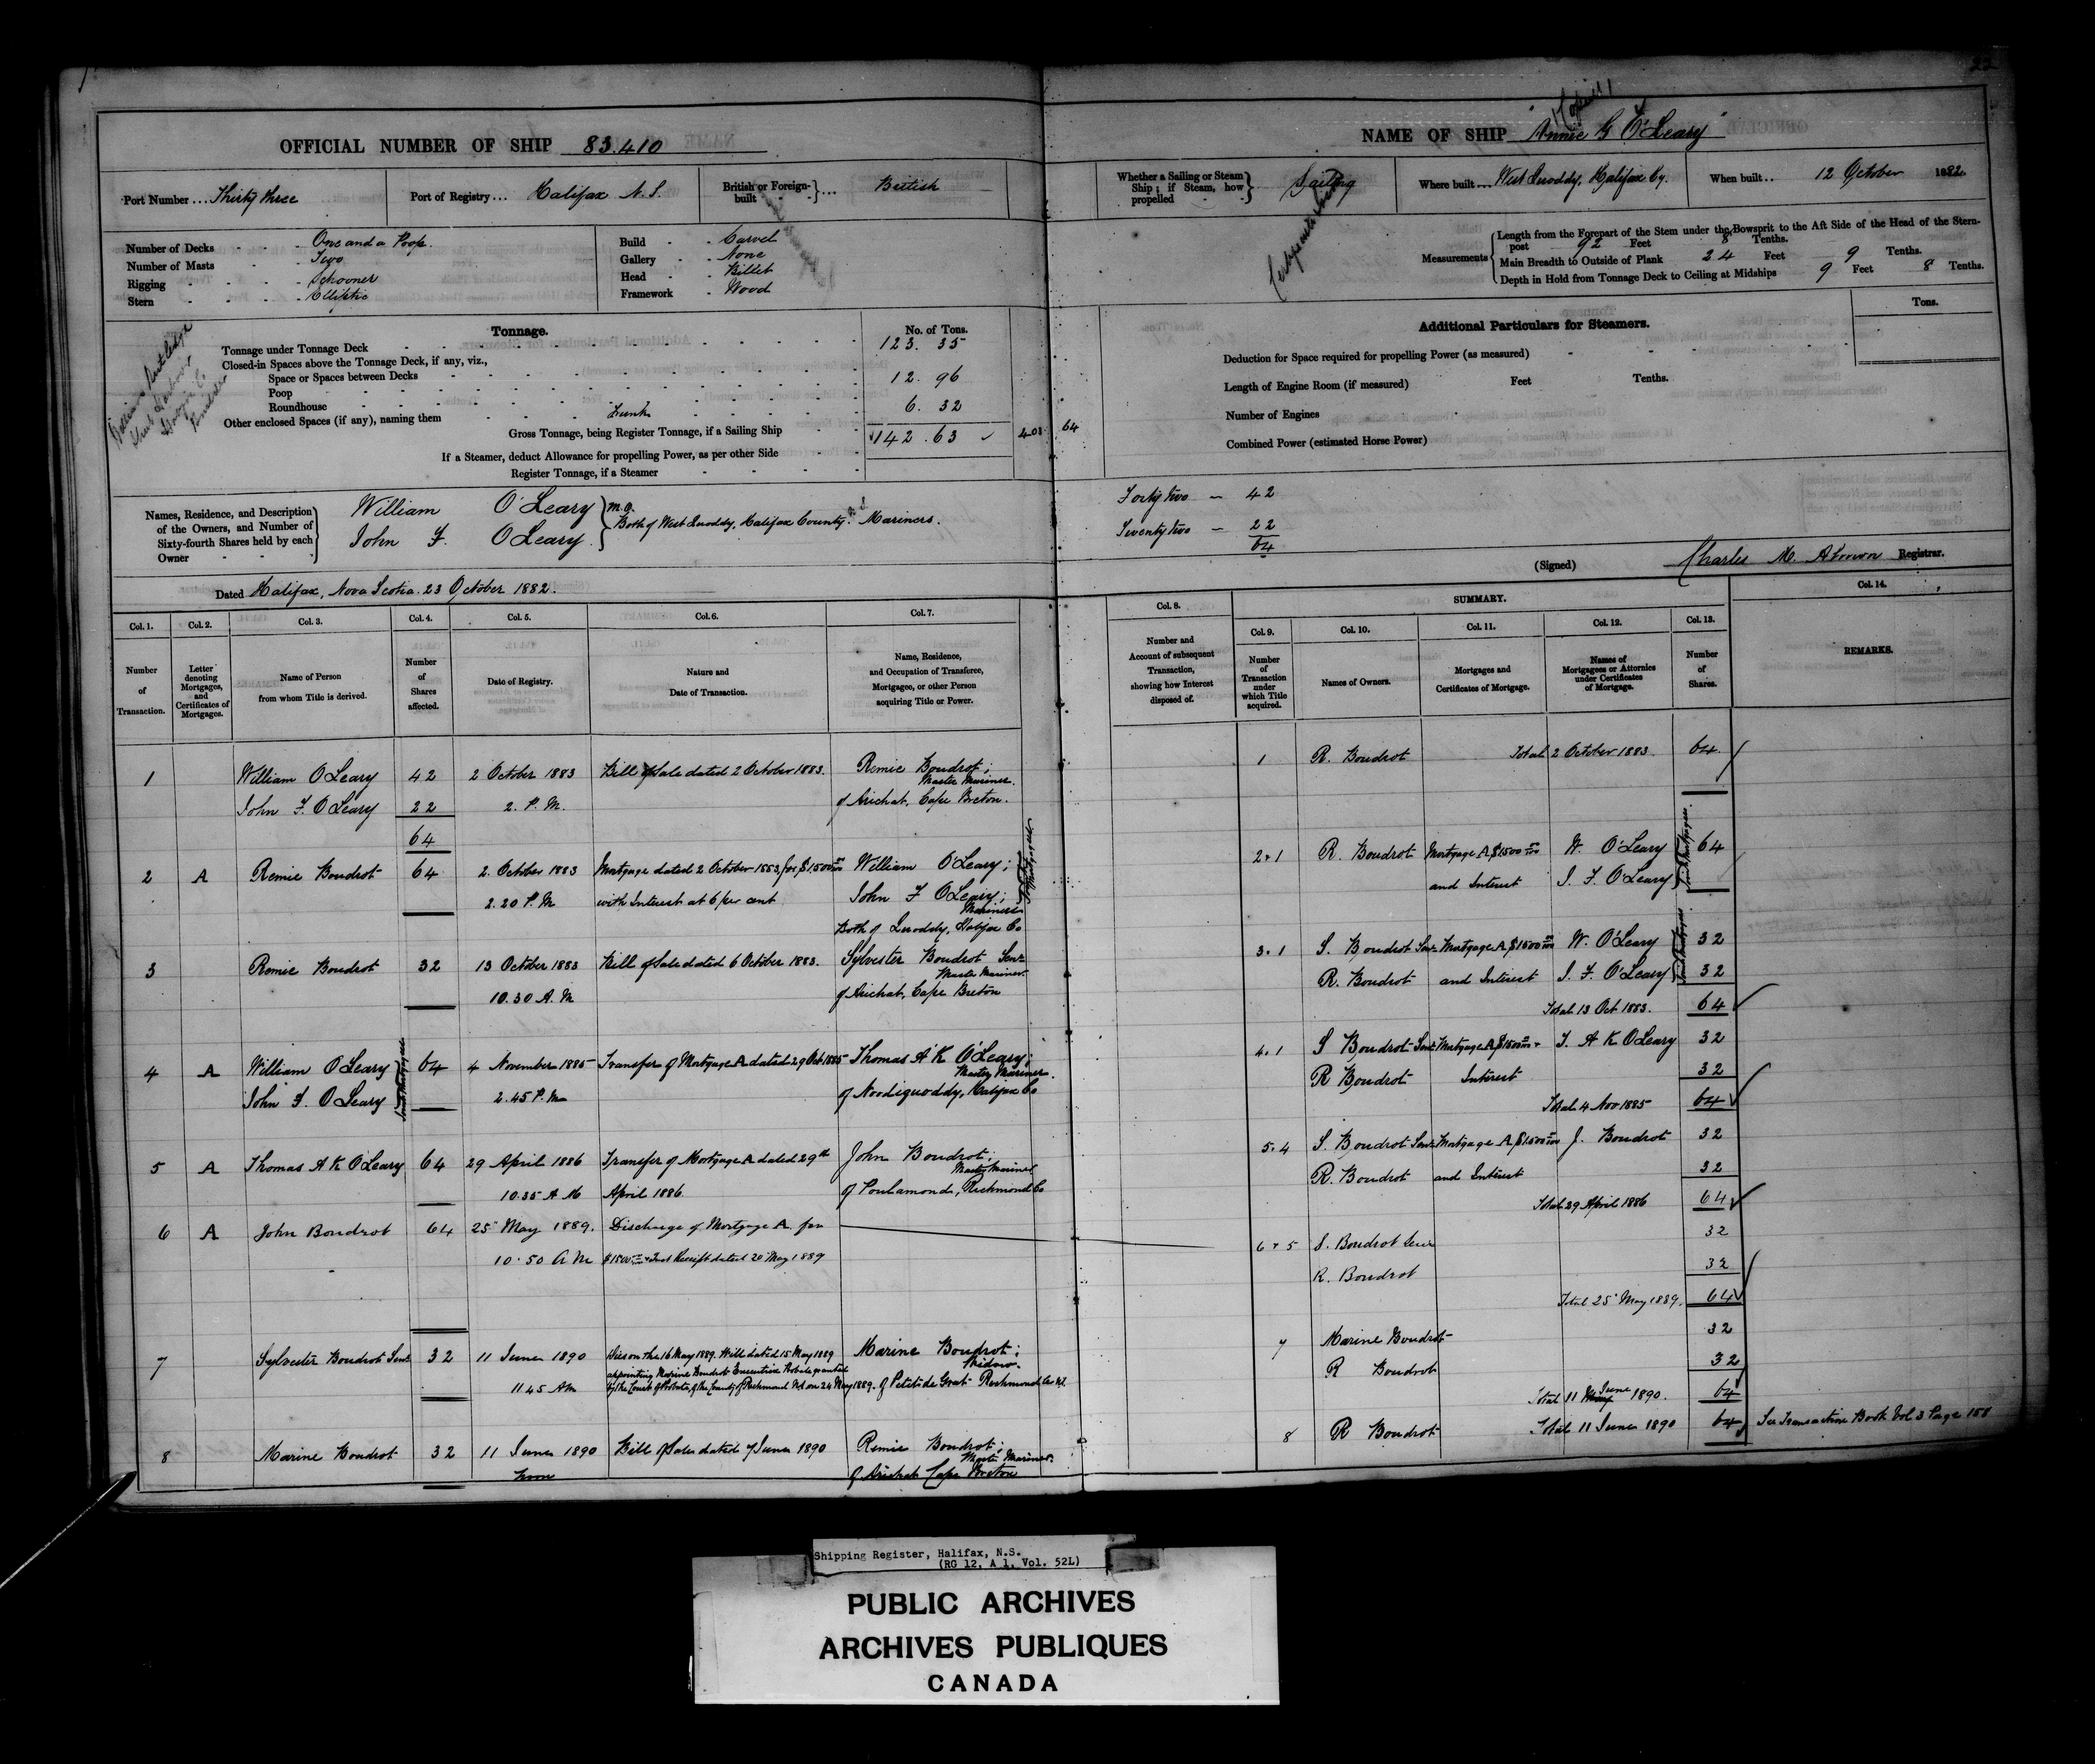 OFFICIAL NUMBER OF SHIP 83.410
Port Number ... Thirty three
Port of Registry ... Halifax N.S.
British or Foreign-built ... British
Number of Decks - One and a Poop.
Number of Masts - Two
Rigging - Schooner
Stern - Elliptic
Build - Carvel
Gallery - None
Head - Billet
Framework - Wood
Tonnage.
No. of Tons.
Tonnage under Tonnage Deck 123.35
Closed-in Spaces above the Tonnage Deck, if any, viz.,
Space or Spaces between Decks
Poop 12.96
Roundhouse
Other enclosed Spaces (if any), naming them Trunk 6.32
Gross Tonnage, being Register Tonnage, if a Sailing Ship 142.63
If a Steamer, deduct Allowance for propelling Power, as per other Side
Register Tonnage, if a Steamer
403 64
Names, Residence, and Description of the Owners, and Number of Sixty-fourth Shares held by each Owner
William O'Leary m.o.
John F. O'Leary
Both of West Quoddy, Halifax County. N.S. Mariners.
Dated Halifax, Nova Scotia. 23 October 1882.
NAME OF SHIP "Annie G O'Leary"
Whether a Sailing or Steam Ship; if Steam, how propelled Sailing
Where built ... West Quoddy, Halifax Cy.
When built .. 12 October 1882
Measurements
Length from the Forepart of the Stem under the Bowsprit to the Aft Side of the Head of the Stern-
post 92 Feet 8 Tenths.
Main Breadth to Outside of Plank 24 Feet 9 Tenths.
Depth in Hold from Tonnage Deck to Ceiling at Midships 9 Feet 8 Tenths.
Additional Particulars for Steamers.
Tons.
Deduction for Space required for propelling Power (as measured)
Length of Engine Room (if measured) Feet Tenths.
Number of Engines
Combined Power (estimated Horse Power)
Forty two - 42
Twenty two - 22
64
(Signed) Charles M. Registrar.
Col. 1. Number of Transaction.
Col. 2. Letter denoting Mortgages, and Certificates of Mortgages.
Col. 3. Name of Person from whom Title is derived.
Col. 4. Number of Shares affected.
Col. 5. Date of Registry.
Col. 6. Nature and Date of Transaction.
Col. 7. Name, Residence, and Occupation of Transferee, Mortgagee, or other Person acquiring Title or Power.
Col. 8. Number and Account of subsequent Transaction, showing how Interest disposed of.
SUMMARY.
Col. 9. Number of Transaction under which Title acquired.
Col. 10. Names of Owners.
Col. 11. Mortgages and Certificates of Mortgage.
Col. 12. Names of Mortgagees or Attornies under Certificates of Mortgage.
Col. 13. Number of Shares.
Col. 14. REMARKS.
1 William O'Leary 42 2 October 1883 Bill of Sale dated 2 October 1883. Remie Boudrot; Master Mariner.
John F. O'Leary 22 2. P.M. of Arichat, Cape Breton.
64
2 A Remie Boudrot 64 2. October 1883 Mortgage dated 2 October 1883 for $1500 William O'Leary;
2.20 P.M with Interest at 6 per cent John F O'Leary; Mariners
Both of Quoddy, Halifax Co
Joint Mortgagees
3 Remie Boudrot 32 13 October 1883 Bill of Sale dated 6 October 1883. Sylvester Boudrot Senr Master Mariner
10.30 A.M of Arichat, Cape Breton
4 A William O'Leary 64 4 November 1885 Transfer of Mortgage A dated 29 Oct 1885 Thomas A K O'Leary; Master Mariner.
John F. O'Leary 2.45 P.M of Halifax Co
Joint Mortgagees
5 A Thomas A K O'Leary 64 29 April 1886 Transfer of Mortgage A dated 29th John Boudrot; Master Mariner
10.35 A M April 1886. of Poulamond, Richmond Co
6 A John Boudrot 64 25 May 1889. Discharge of Mortgage A. for
10.50 A M $1500 + Int Receipt dated 20 May 1889
7 Sylvester Boudrot Senr 32 11 June 1890 Dies on the 16 May 1889. Will dated 15 May 1889 Marine Boudrot; Widow.
appointing Marine Boudrot Executrix Probate granted
11 45 Am by the Court of Probate of the County of Richmond NS on 24 May 1889. of Petit de Grat Richmond Co N.S.
8 Marine Boudrot 32 11 June 1890 Bill of Sale dated 7 June 1890 Remie Boudrot; Master Mariner.
noon of Arichat Cape Breton
1 R. Boudrot Total 2 October 1883 64
2+1 R. Boudrot Mortgage A $1500 W. O'Leary 64
and Interest J. F. O'Leary
Joint Mortgagees
3+1 S. Boudrot Senr Mortgage A $1500 W. O'Leary 32
R. Boudrot and Interest J. F. O'Leary 32
Joint Mortgagees
Total 13 Oct 1883. 64
4+1 S Boudrot Senr Mortgage A $1500 + T. A K O'Leary 32
R Boudrot Interest 32
Total 4 Nov 1885 64
5+4 S. Boudrot Senr Mortgage A $1500 J. Boudrot 32
R. Boudrot and Interest 32
Total 29 April 1886 64
6+5 S. Boudrot Senr 32
R. Boudrot 32
Total 25 May 1889. 64
7 Marine Boudrot 32
R Boudrot 32
Total 11 June 1890. 64
8 R Boudrot Total 11 June 1890 64 See Transaction Book Vol 3 Page 158
Shipping Register, Halifax, N.S.
(RG 12, A 1, Vol. 52L)
PUBLIC ARCHIVES
ARCHIVES PUBLIQUES
CANADA